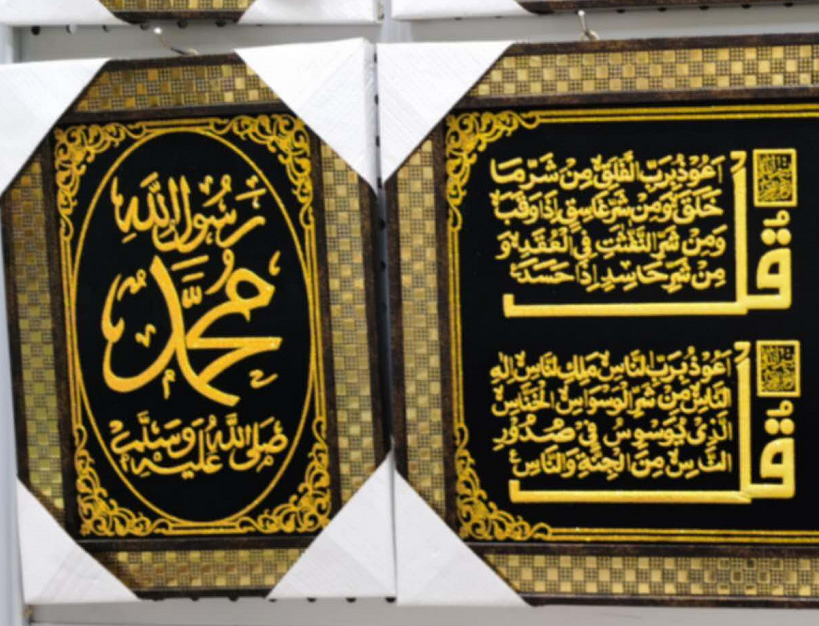 رَسُولُ اللَّه
مُحَمَّد
صَلَّى اللَّهُ عَلَيْهِ وَسَلَّم
قُلْ
اَعُوْذُ بِرَبِّ الْفَلَقِ مِنْ شَرِّ مَا
خَلَقَ وَمِنْ شَرِّ غَاسِقٍ اِذَا وَقَبَ
وَمِنْ شَرِّ النَّفّٰثٰتِ فِي الْعُقَدِ وَ
مِنْ شَرِّ حَاسِدٍ اِذَا حَسَدَ
قُلْ
اَعُوْذُ بِرَبِّ النَّاسِ مَلِكِ النَّاسِ اِلٰهِ
النَّاسِ مِنْ شَرِّ الْوَسْوَاسِ الْخَنَّاسِ
الَّذِىْ يُوَسْوِسُ فِىْ صُدُوْرِ
النَّاسِ مِنَ الْجِنَّةِ وَالنَّاسِ